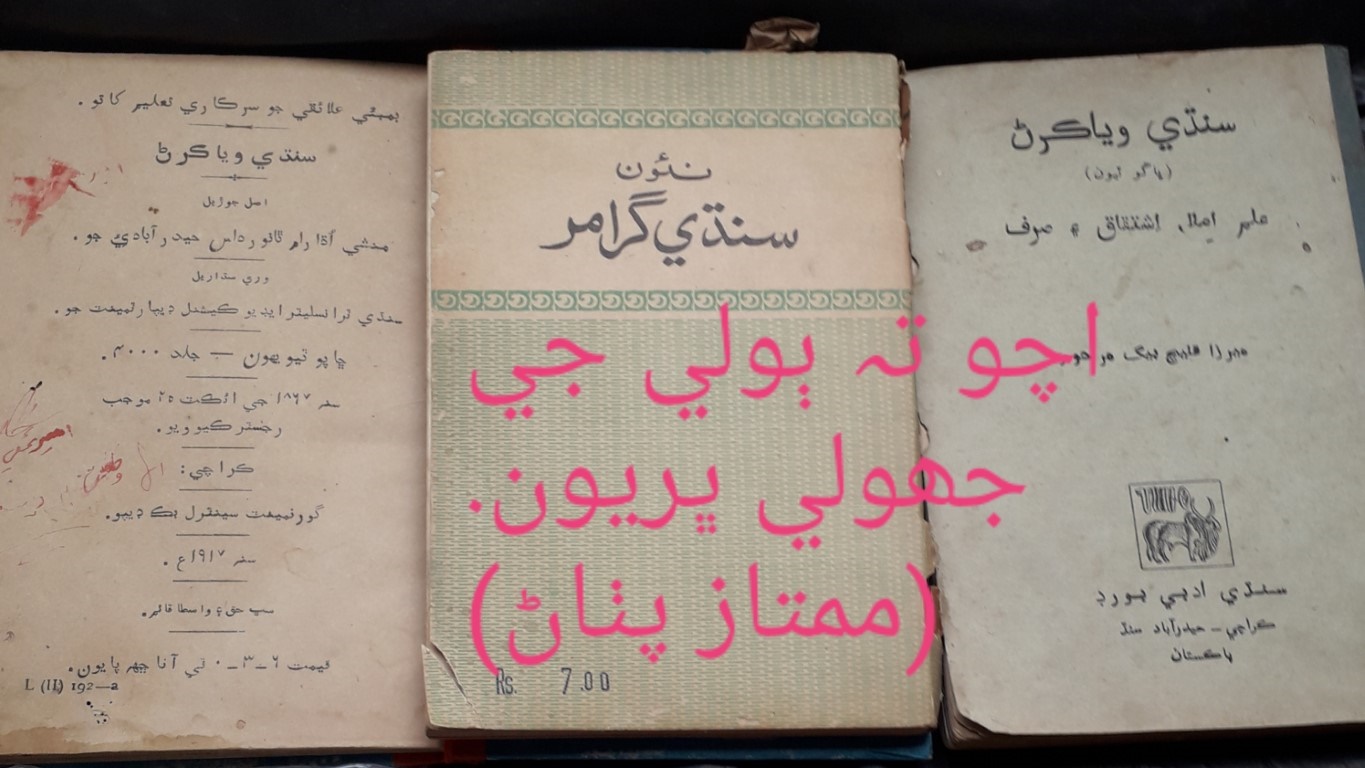 بمبئي علائقي جو سرڪاري تعليم کاتو.
سنڌي وياڪرڻ
اصل جوڙيل
منشي اُڌارام ٿانورداس حيدرآبادي جو.
وري سڌاريل
سنڌي ٽرانسليٽر ايڊيوڪيشنل ڊيپارٽمينٽ جو.
ڇاپو ٽيون — جلد ۴۰۰۰.
سنہ ۱۸۶۷ جي ائڪٽ ۲۵ موجب
رجسٽر ڪيو ويو.
ڪراچي:
گورنمينٽ سينٽرل بڪ ڊيپو.
سنہ ۱۹۱۷ع.
سڀ حق ۽ واسطا قائم.
قيمت ۶-۳-۰ ٽي آنا ڇهہ پايون.
L (II) 192—a
نئون
سنڌي گرامر
Rs. 7.00
سنڌي وياڪرڻ
(ڀاڱو ٽيون)
علم امالا، اِشتقاق ۽ صرف
مرزا قليچ بيگ مرحوم
سنڌي ادبي بورڊ
ڪراچي - حيدرآباد سنڌ
پاڪستان
اچو تہ ٻولي جي
جھولي ڀريون.
(ممتاز پٺاڻ)